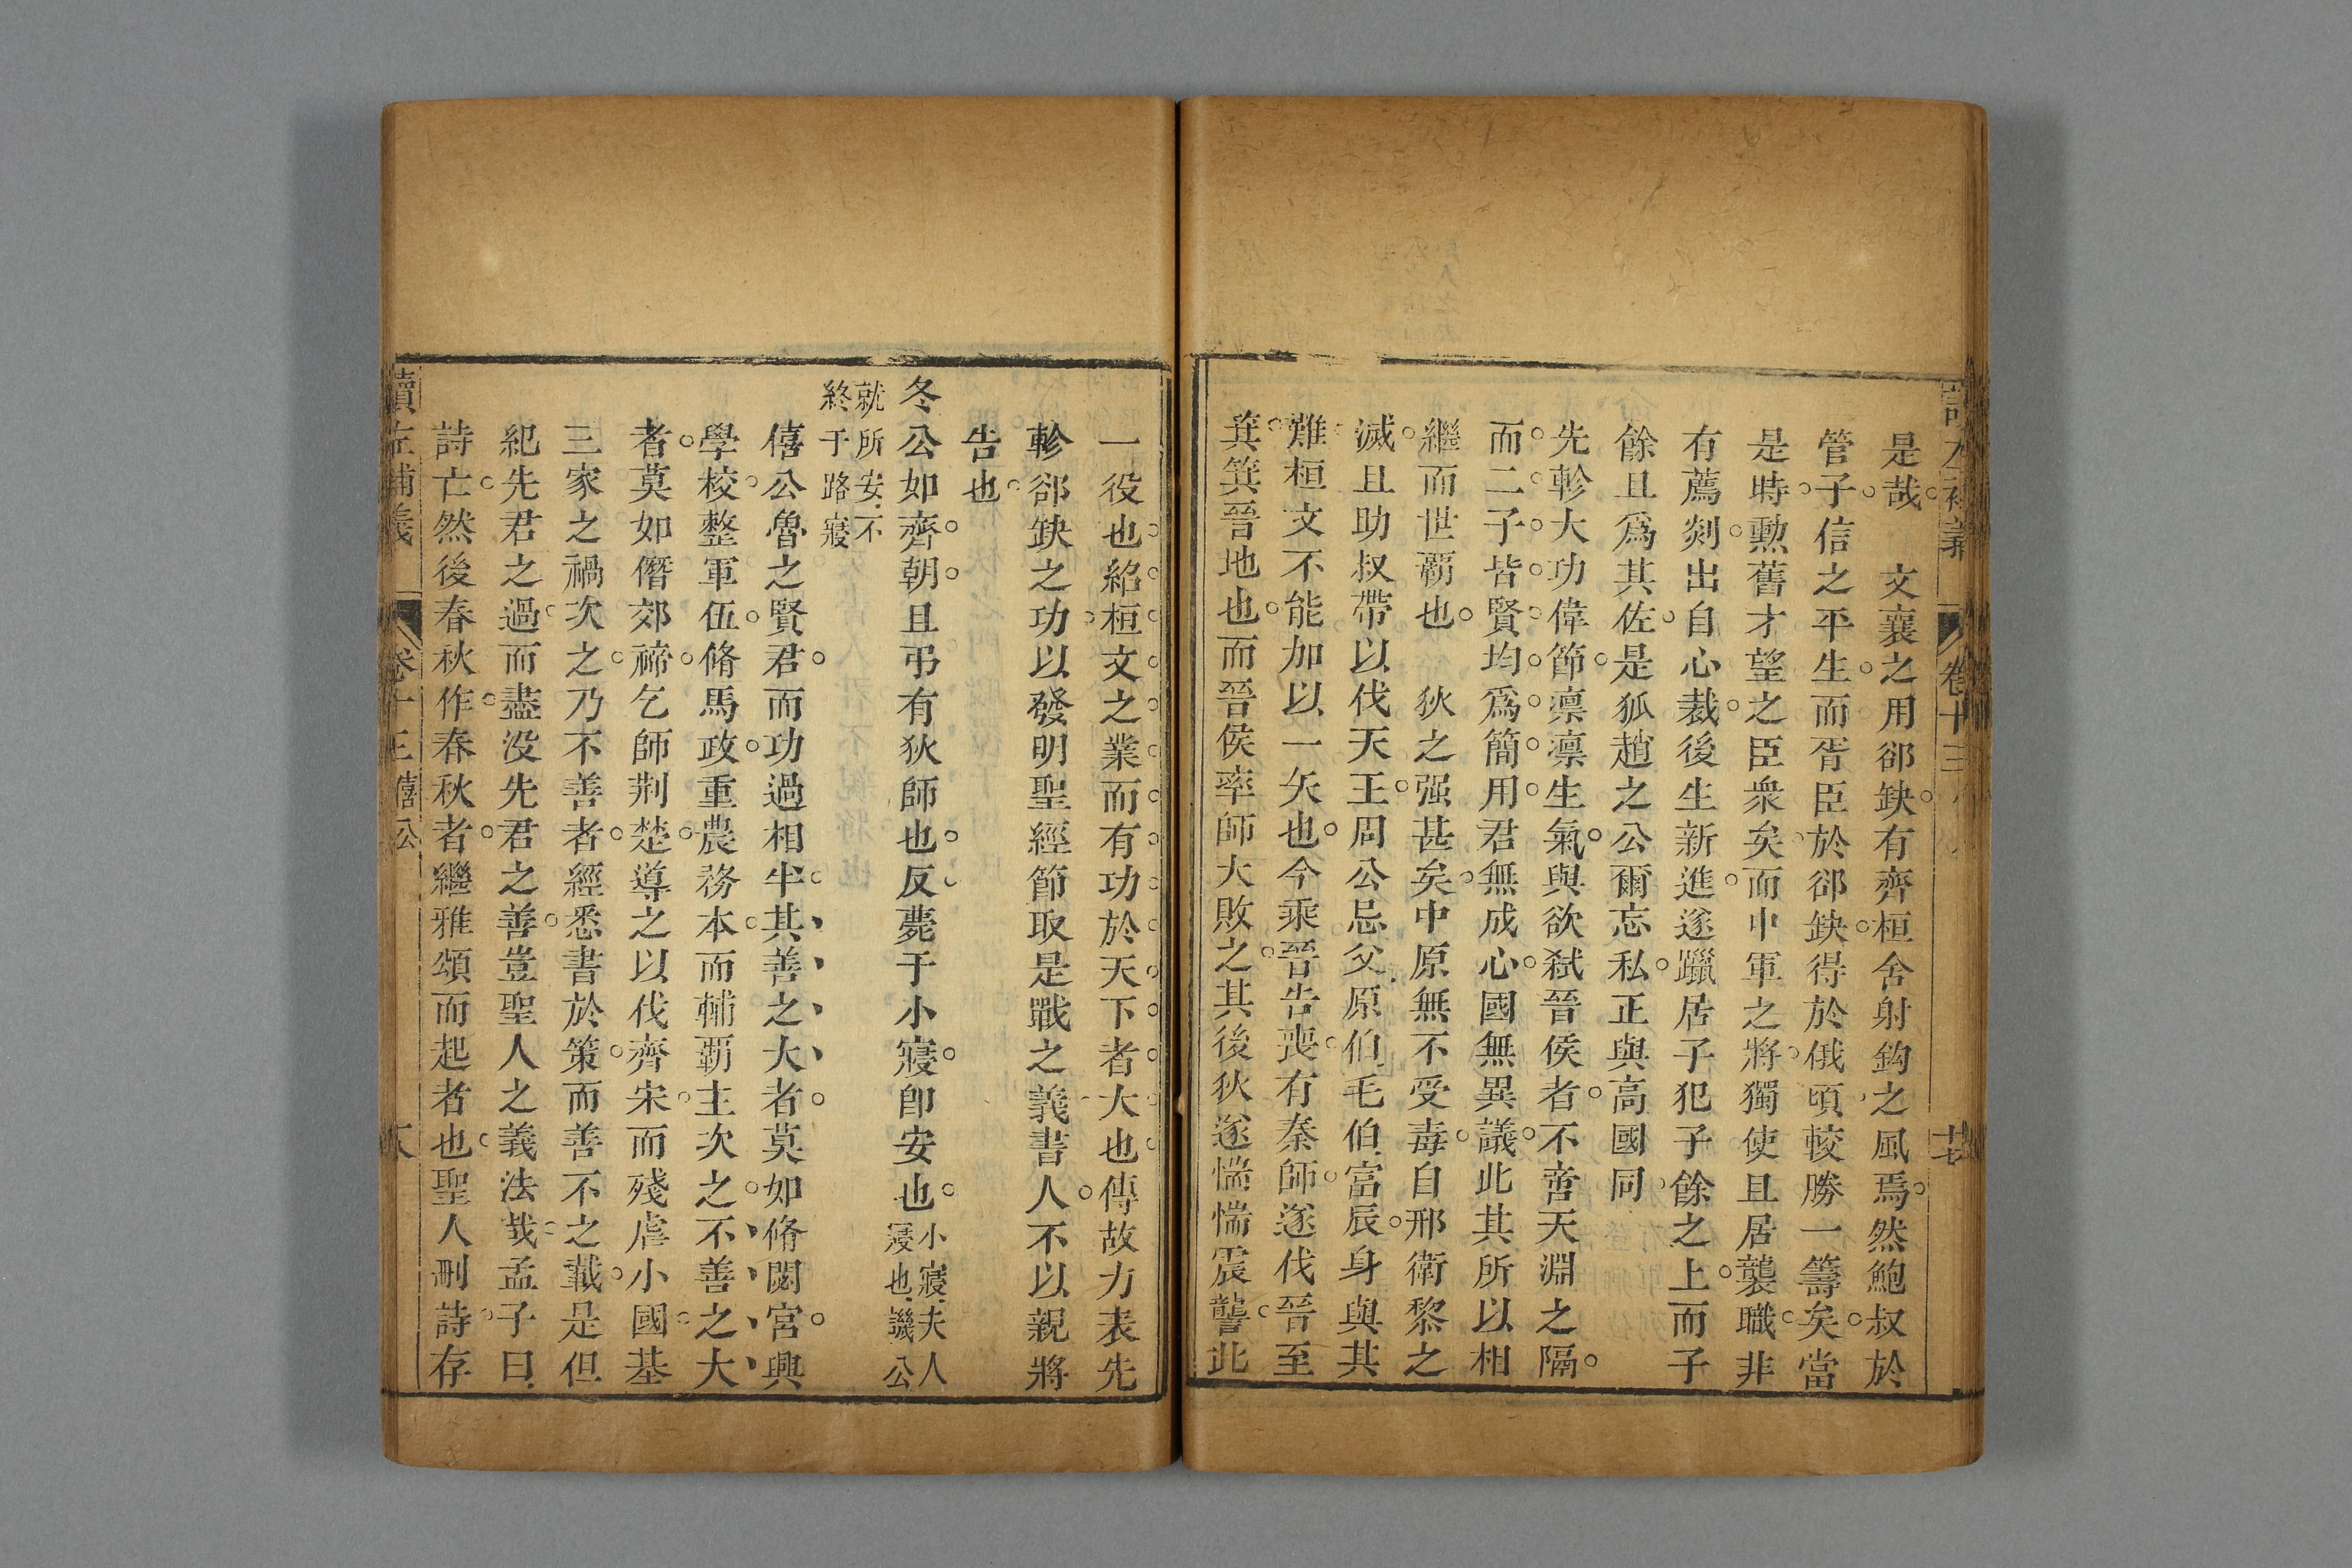 讀左補義 卷十三
是哉　文襄之用郤缺有齊桓舍射鈎之風焉然鮑叔於
管子信之平生而胥臣於郤缺得於俄頃較勝一籌矣當
是時勲舊才望之臣衆矣而中軍之將獨使且居襲職非
有薦剡出自心裁後生新進遂躐居子犯子餘之上而子
餘且爲其佐是狐趙之公爾忘私正與高國同
先軫大功偉節凛凛生氣與欲弑晉侯者不啻天淵之隔
而二子皆賢均爲簡用君無成心國無異議此其所以相
繼而世覇也　狄之强甚矣中原無不受毒自邢衛黎之
滅且助叔帶以伐天王周公忌父原伯毛伯富辰身與其
難桓文不能加以一矢也今乘晉告喪有秦師遂伐晉至
箕箕晉地也而晉侯率師大敗之其後狄遂惴惴震讋此
一役也紹桓文之業而有功於天下者大也傳故力表先
軫郤缺之功以發明聖經節取是戰之義書人不以親將
告也
冬公如齊朝且弔有狄師也反薨于小寢卽安也小寢夫人
寢也譏公
就所安不
終于路寢
僖公魯之賢君而功過相半其善之大者莫如脩閟宮興
學校整軍伍脩馬政重農務本而輔覇主次之不善之大
者莫如僭郊禘乞師荆楚導之以伐齊宋而殘虐小國基
三家之禍次之乃不善者經悉書於策而善不之載是但
紀先君之過而盡没先君之善豈聖人之義法哉孟子曰
詩亡然後春秋作春秋者繼雅頌而起者也聖人刪詩存
讀左補義 卷十三 僖公